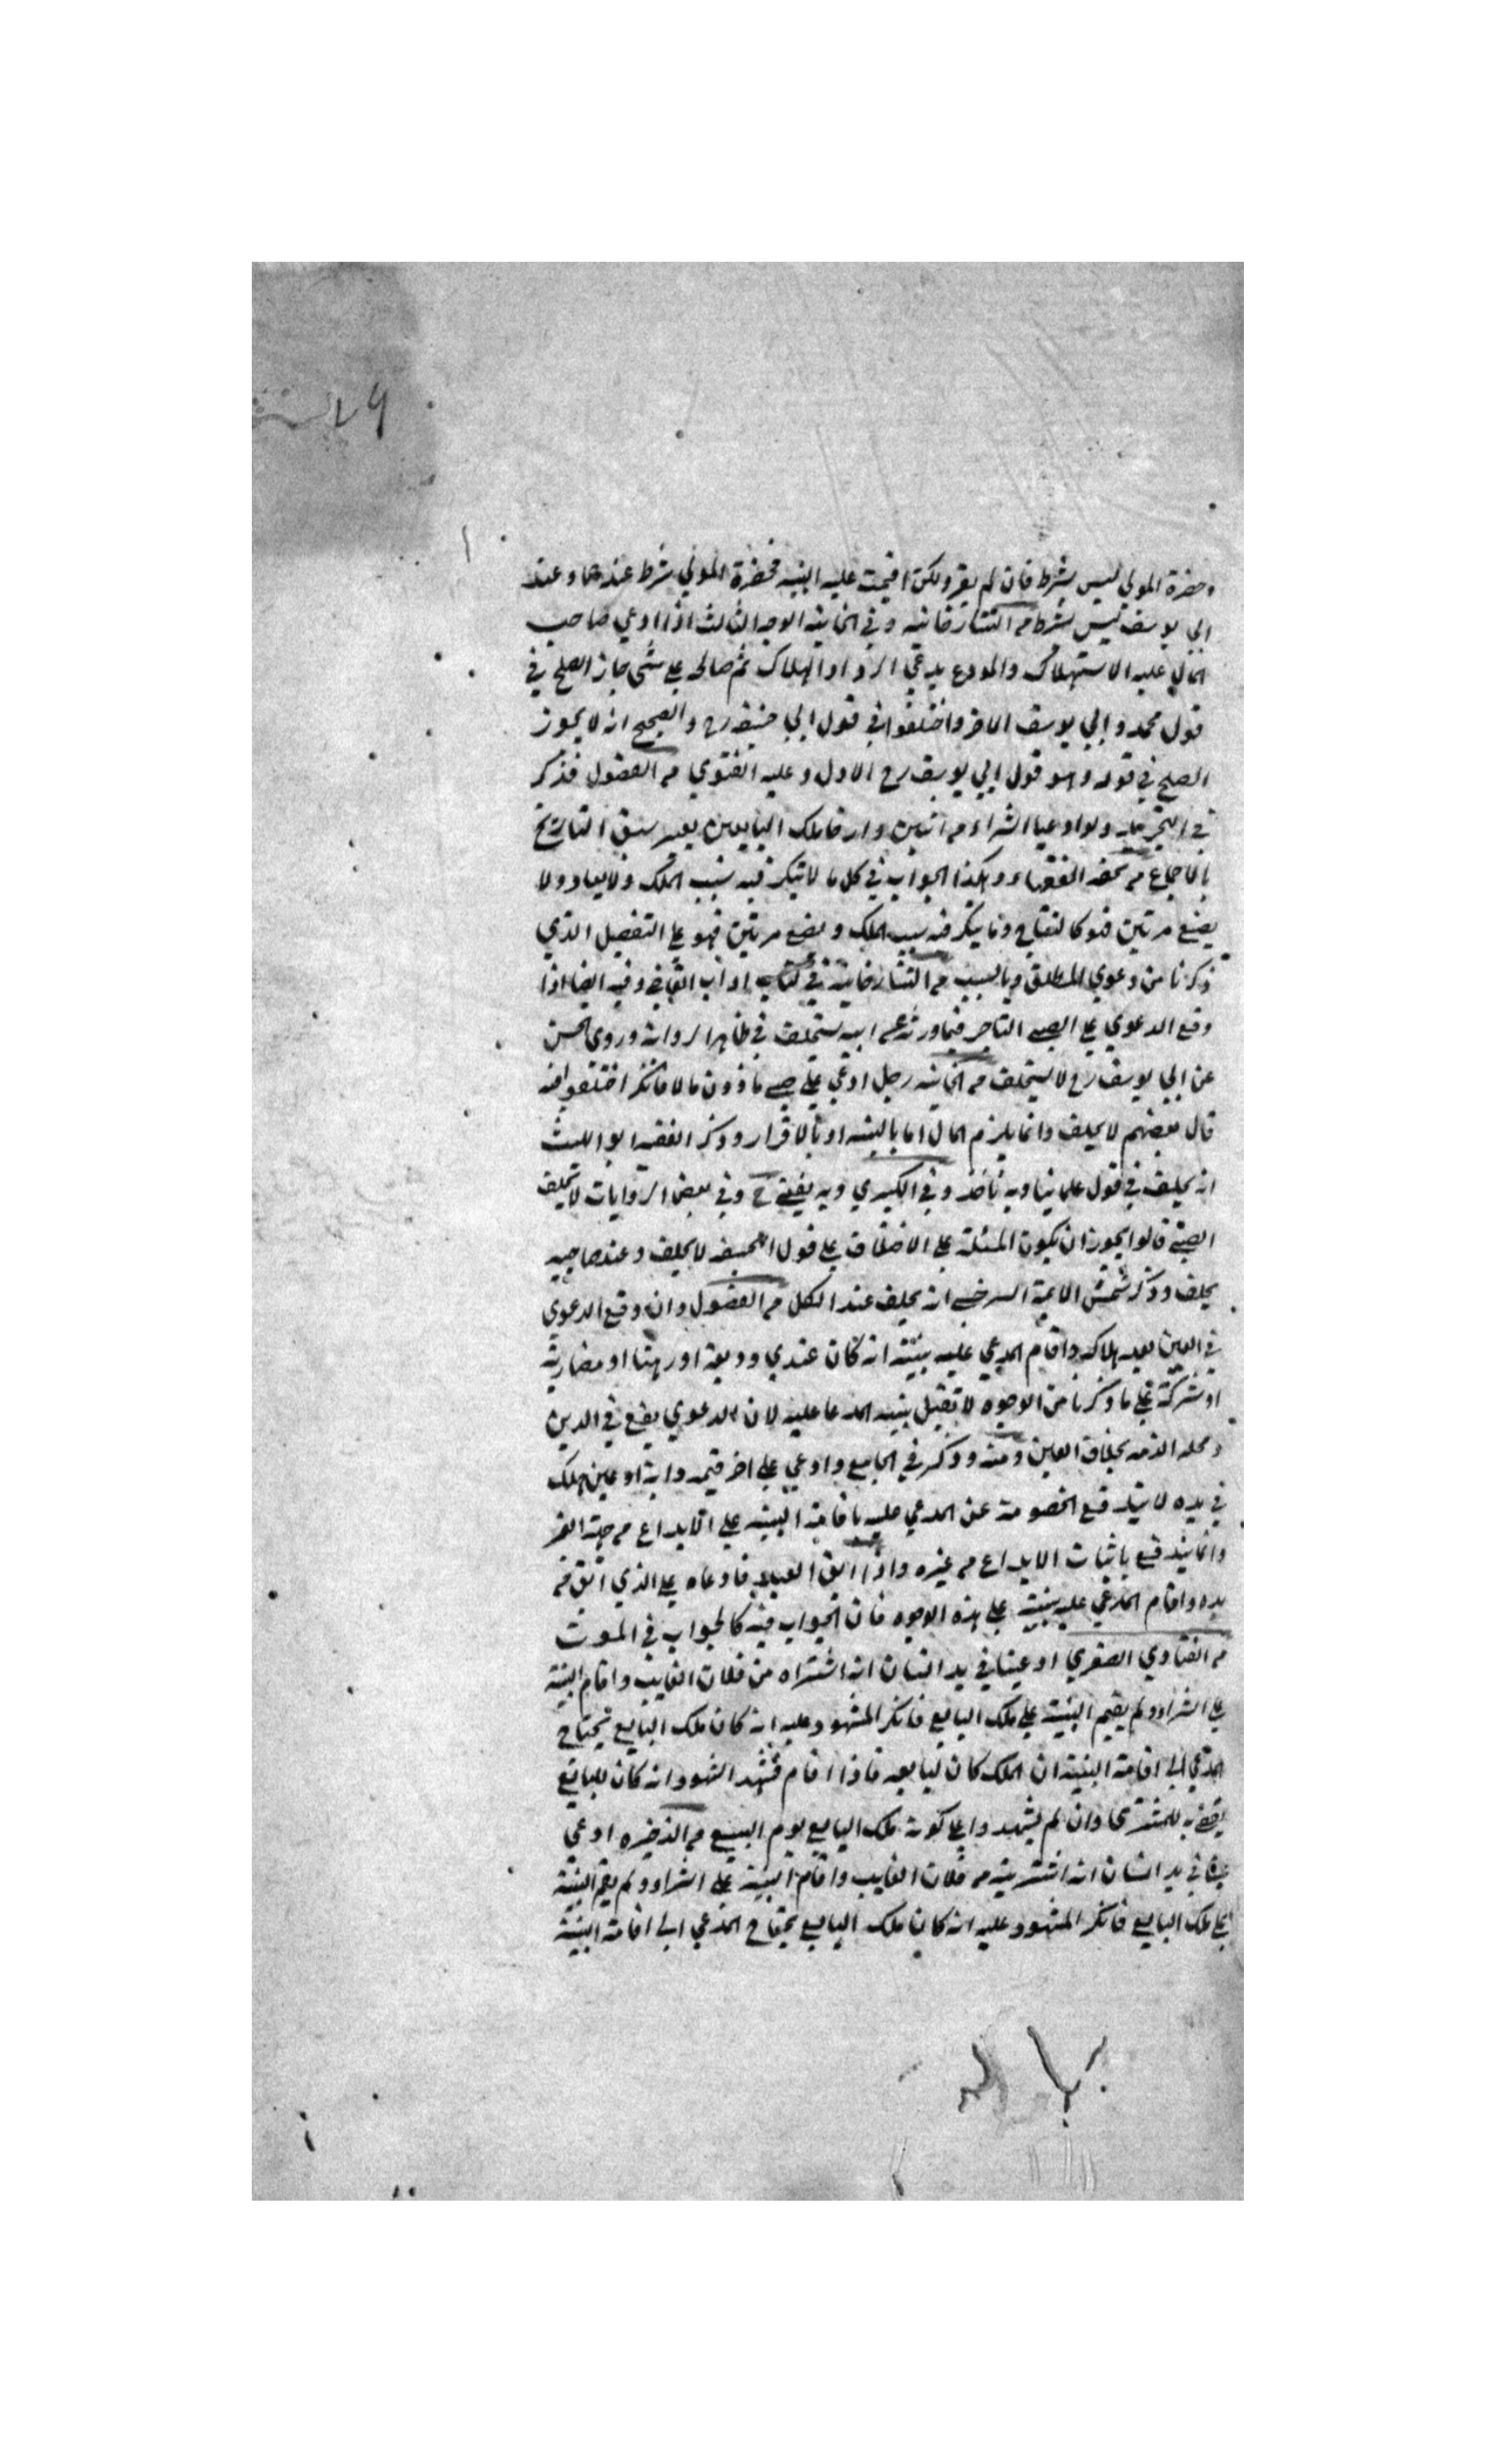 وحضرة المولي ليس بشرط فان لم يقر ولكن اقيمت عليه البنيه فحضرة المولي شرط عندهما وعند
ابي يوسف ليس بشرط من التتارخانيه وفي الخانيه الوجه الثالث اذا ادعي صاحب
المال عليه الاستهلاك والمودع يدعي الرد او الهلاك ثم صالحه علي شي جاز الصلح في
قول محمد وابي يوسف الاخر واختلفوا في قول ابي حنيفه رح والصحيح انه لا يجوز
الصلح في قوله وهو قول ابي يوسف رح الاول وعليه الفتوي من الفصول فذكر
في التجريد ولو ادعيا الشراء من اثنين وارخا ملك البايعين يعتبر سبق التاريخ
بالاجماع من تحفه الفقهاء وهكذا الجواب في كل ما لا يتكرر فيه سبب الملك ولا يعاد ولا
يصنع مرتين فهو كالنتاج وما يتكرر فيه سبب الملك ويصنع مرتين فهو علي التفصيل الذي
ذكرنا من دعوي المطلق وبالسبب من التتارخانية في كتاب اداب القاضي وفيه ايضا اذا
وقع الدعوي علي الصبي التاجر فيما ورثه عن ابيه يستحلف في ظاهر الرواية وروي الحسن
عن ابي يوسف رح لا يستحلف من الخانيه رجل ادعي علي صبي ماذون مالا فانكر اختلفوا فيه
قال بعضهم لا يحلف وانما يلزم المال اما بالبينه او بالاقرار وذكر الفقيه ابو الليث
انه يحلف في قول علماينا وبه ناخذ وفي الكبري وبه يفتي ح وفي بعض الروايات لا يحلف
الصبي قالوا يجوز ان يكون المسئلة علي الاختلاف علي قول ابحنيفه لا يحلف وعند صاحبيه
يحلف وذكر شمس الايمة السرخسي انه يحلف عند الكل من الفصول وان وقع الدعوي
في العين بعد هلاكه واقام المدعي عليه بينة انه كان عندي وديعة او رهنا او مضاربة
او شركة علي ما ذكرنا من الوجوه لا تقبل بينه المدعا عليه لان الدعوي يقع في الدين
ومحله الذمه بخلاف العين ومنه وذكر في الجامع وادعي علي اخر قيمه دابة او عين هلك
في يده لا يندفع الخصومة عن المدعي عليه باقامة البينه علي الايداع من جهة الغير
وانما يندفع باثبات الايداع من غيره واذا ابق العبد فادعاه علي الذي ابق من
يده واقام المدعي عليه بينة علي هذه الوجوه فان الجواب فيه كالجواب في الموت
من الفتاوي الصغري ادعي عينا في يد انسان انه اشتراه من فلان الغايب واقام البينة
علي الشراء ولم يقم البينة علي ملك البايع فانكر المشهود عليه انه كان ملك البايع يحتاج
المدعي الي اقامة البينة ان الملك كان لبايعه فاذا اقام فشهد الشهود انه كان للبايع
يقضي به للمشتري وان لم يشهدوا علي كونه ملك البايع يوم البيع من الذخيره ادعي
عينا في يد انسان انه اشتريته من فلان الغايب واقام البينة علي الشراء ولم يقم البينة
علي ملك البايع فانكر المشهود عليه انه كان ملك البايع يحتاج المدعي الي اقامة البينة